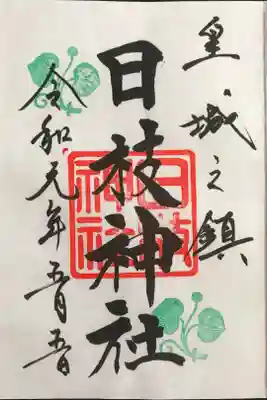 皇城之鎮
日枝神社
日枝神社
令和元年五月五日